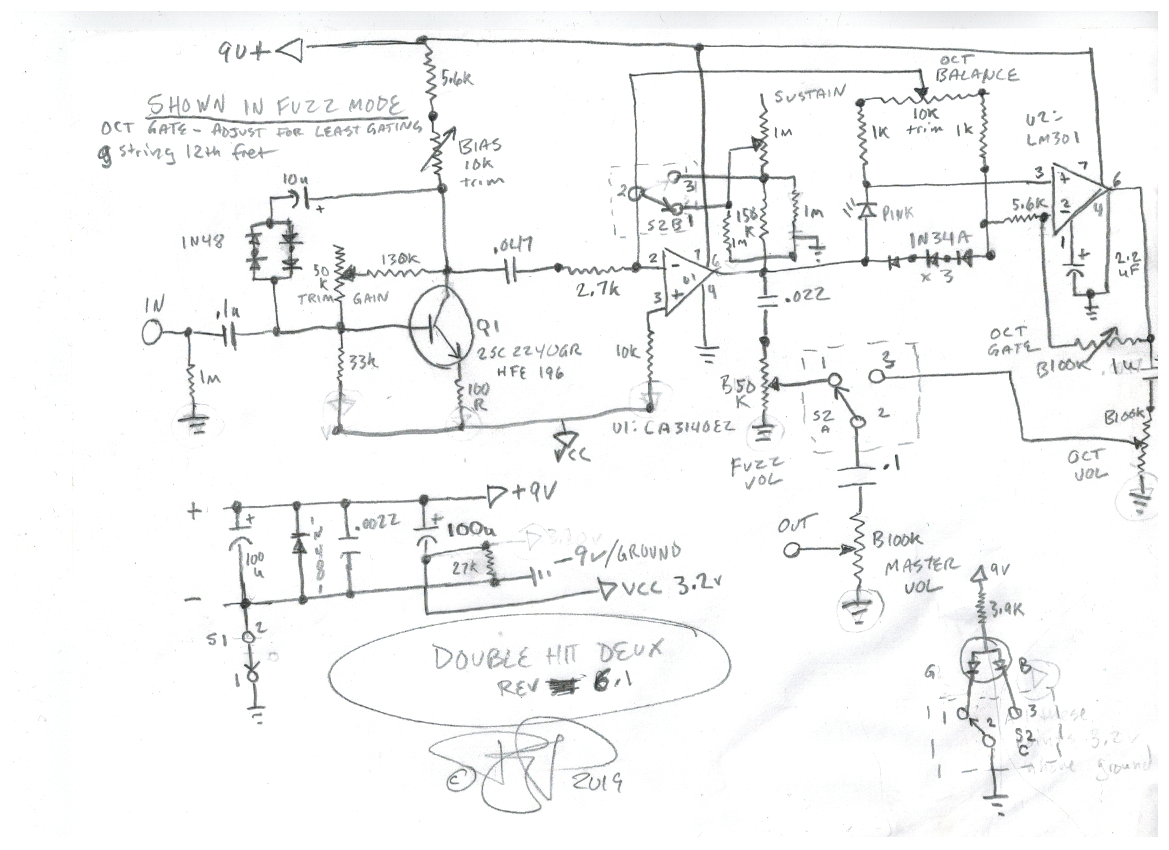 9V+
5.6K
OCT
BALANCE
SUSTAIN
SHOWN IN FUZZ MODE
OCT GATE - ADJUST FOR LEAST GATING
g string 12th fret
BIAS
10K
trim
1M
1K
10K
trim
1K
U2=
LM301
10u
+
2
3
1
S2B
3
+
7
6
2
4
5.6K
1N48
150
K
1M
1M
PINK
1
+
2.2
uF
50
K
TRIM
130K
GAIN
.047
2.7K
2
-
7
6
3
+
U1
4
1N34A
x 3
.022
IN
.1u
Q1
2SC2240GR
HFE 196
10K
OCT
GATE
B100K
.1u
1M
33K
100
R
VCC
U1: CA3140EZ
B50
K
1
3
S2
A
2
FUZZ
VOL
B100K
OCT
VOL
.1
+
+9V
+
100
u
.0022
+
100u
27K
-9V/GROUND
VCC 3.2V
-
OUT
B100K
MASTER
VOL
S1
2
1
9V
3.9K
DOUBLE HIT DEUX
REV 6.1
G
B
1
2
3
S2
C
3.2V
ground
© 2019